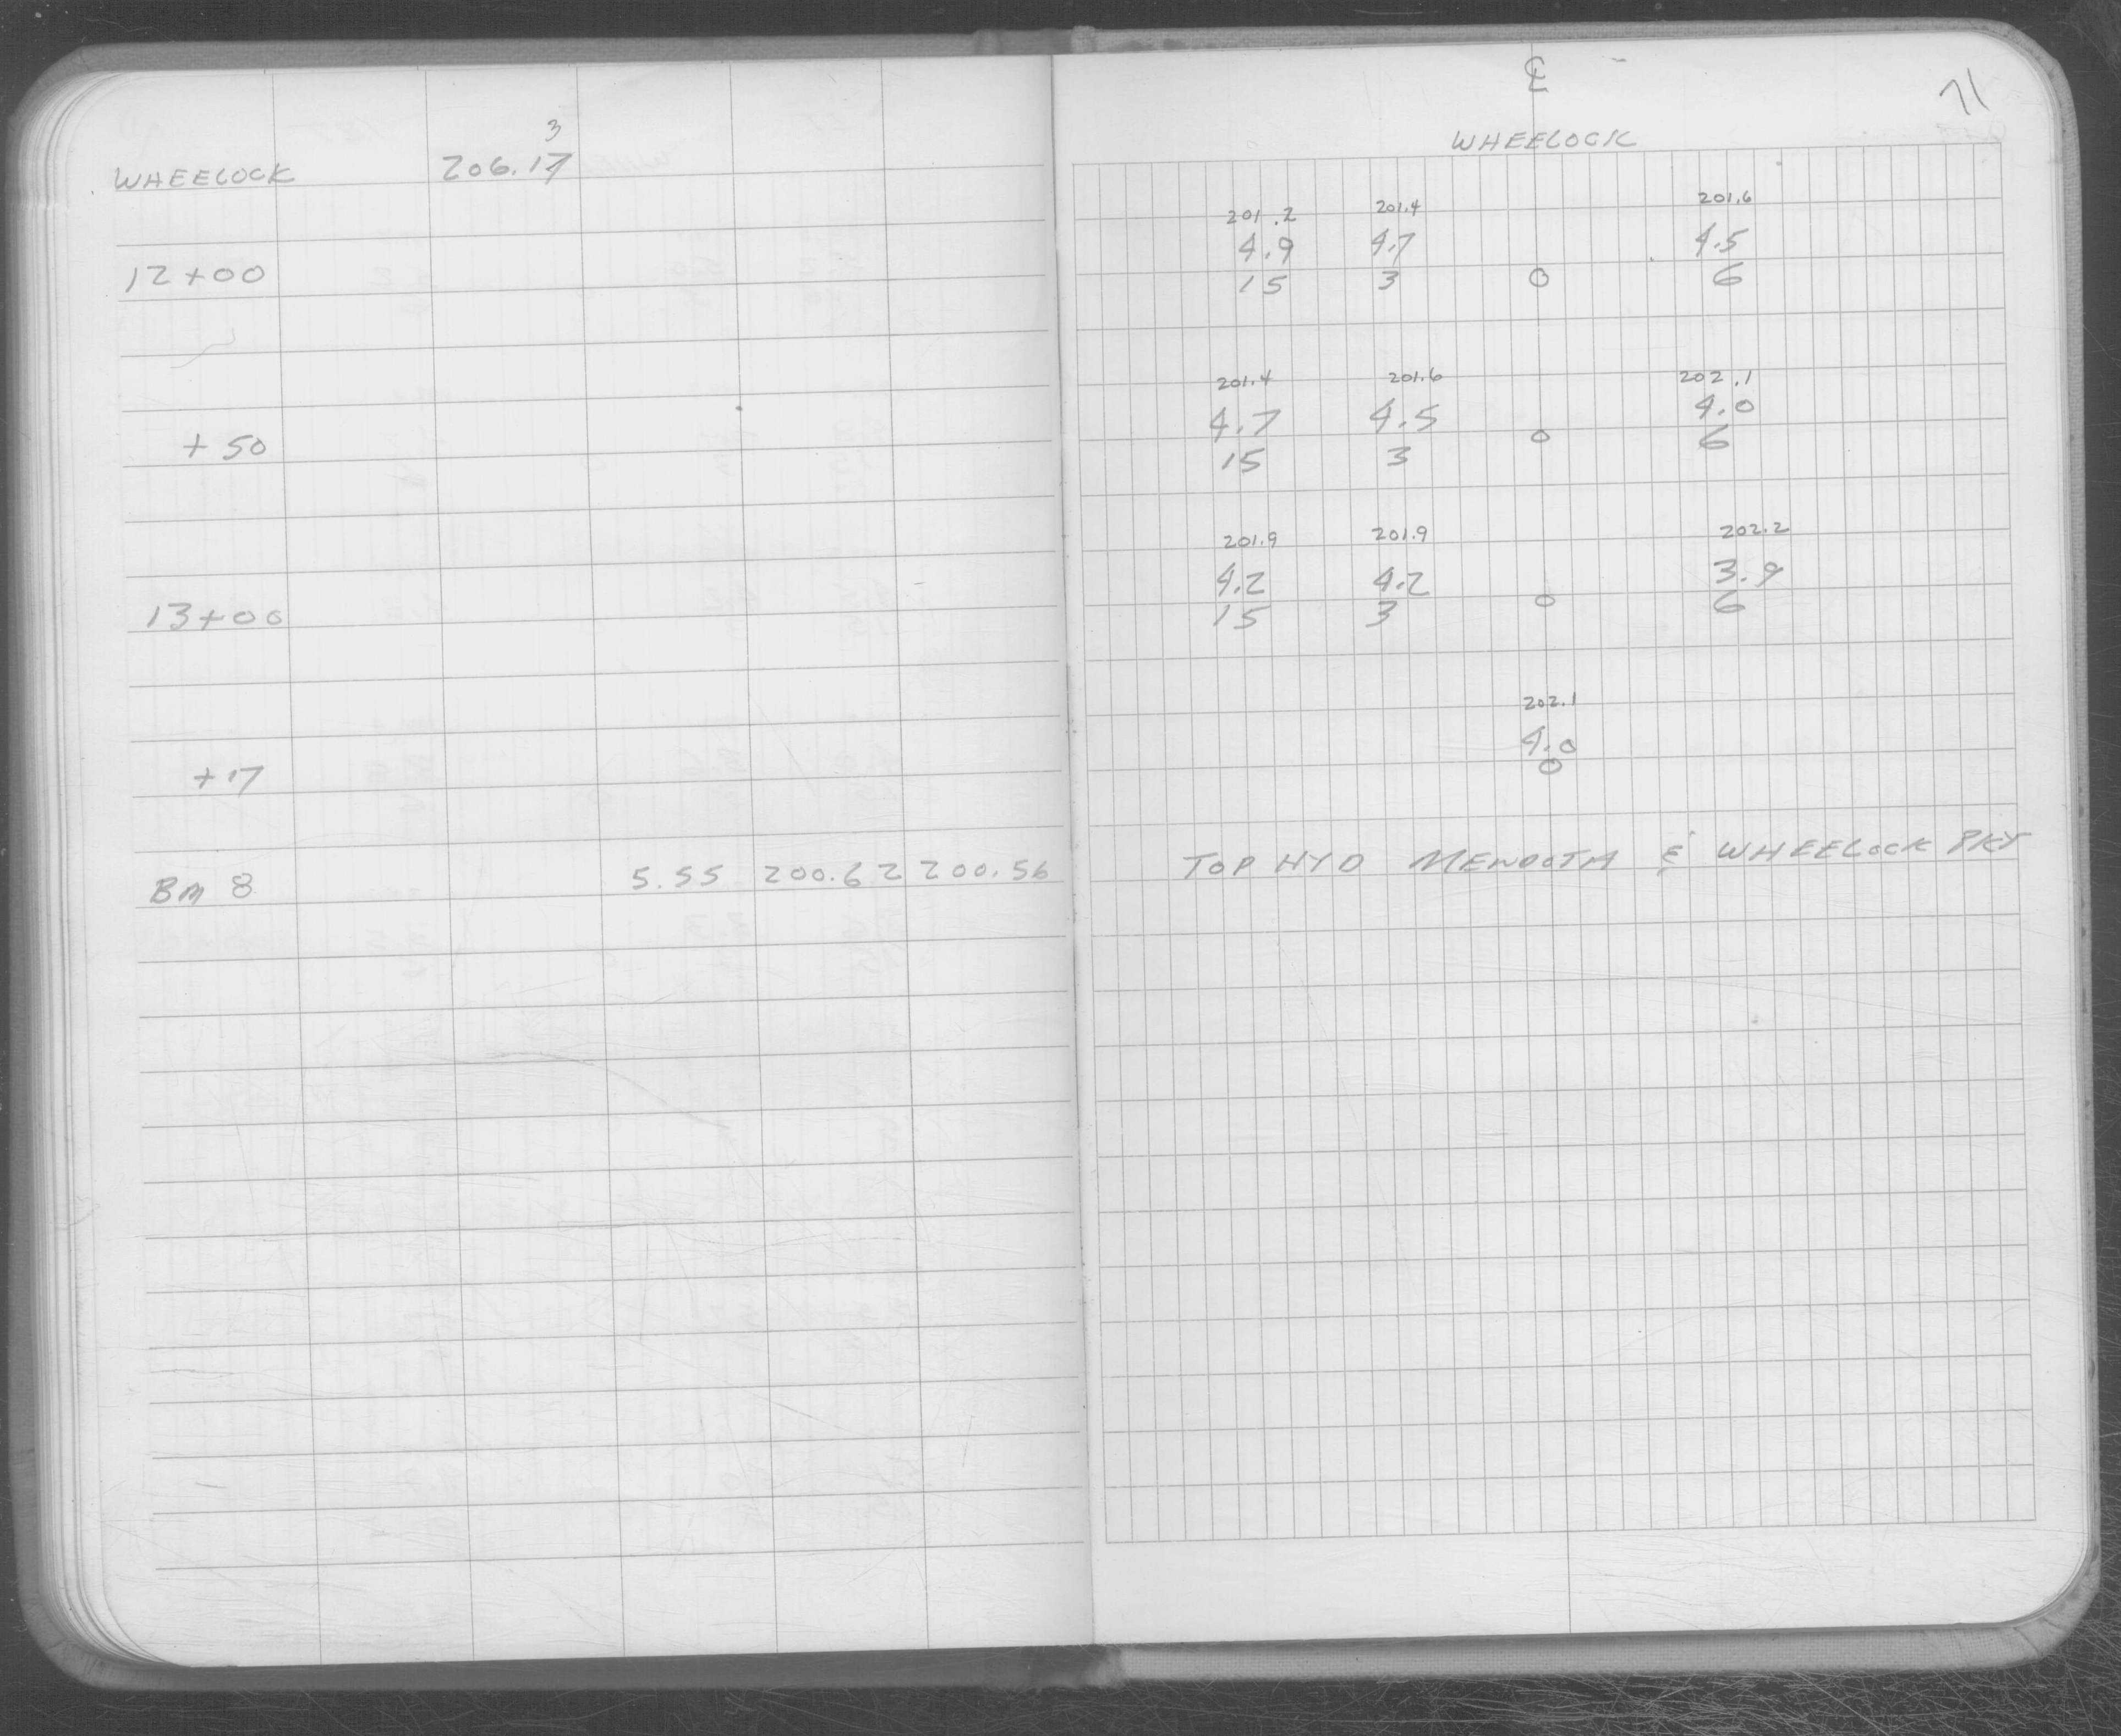 WHEELOCK 206.17
3
12+00
+50
13+00
+17
BM 8 5.55 200.62 200.56
℄
71
WHEELOCK
201.2 201.4 201.6
4.9 4.7 4.5
15 3 0 6
201.4 201.6 202.1
4.7 4.5 4.0
15 3 0 6
201.9 201.9 202.2
4.2 4.2 3.9
15 3 0 6
202.1
4.0
0
TOP HYD MENDOTA & WHEELOCK PKY